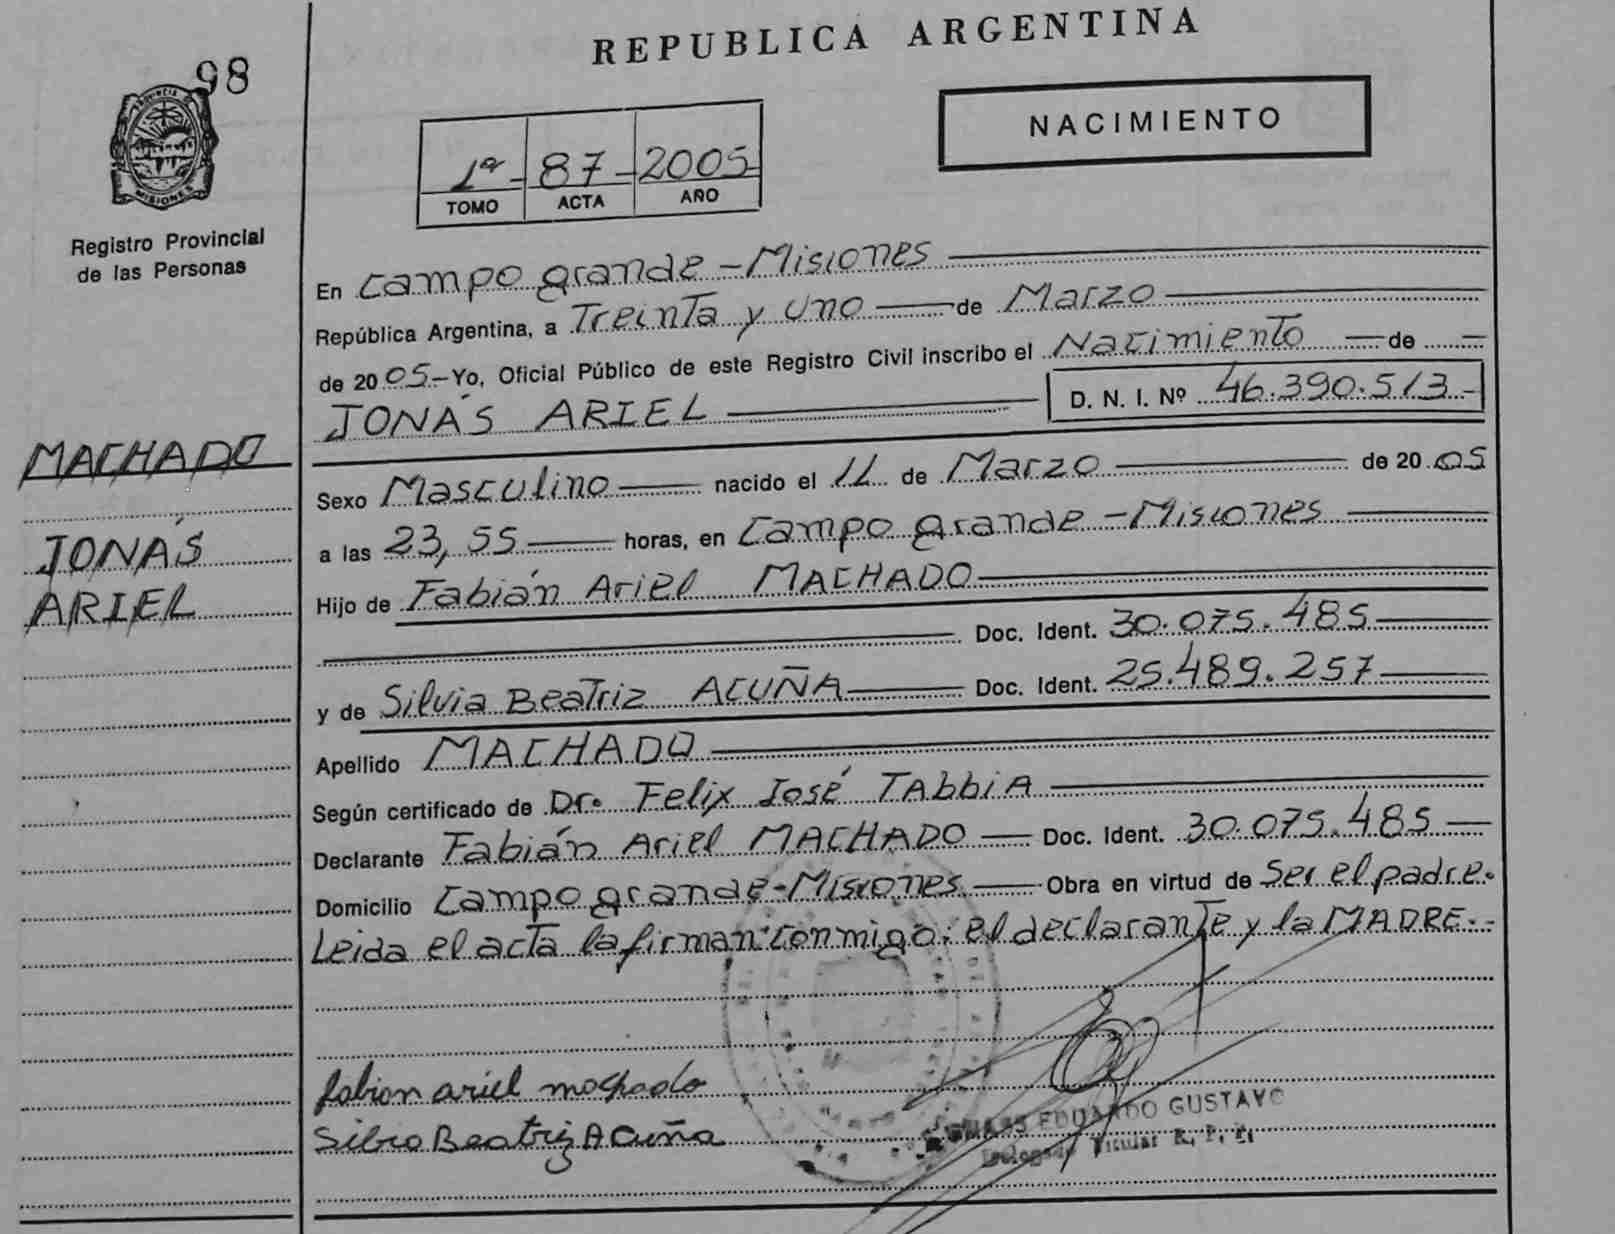 REPUBLICA ARGENTINA
98
NACIMIENTO
PROVINCIA DE
MISIONES
1º - 87 - 2005
TOMO ACTA AÑO
Registro Provincial
de las Personas
En Campo grande - Misiones
República Argentina, a Treinta y uno de Marzo
de 2005 - Yo, Oficial Público de este Registro Civil inscribo el Nacimiento de
JONÁS ARIEL D. N. I. Nº 46.390.513 -
MACHADO
JONÁS
ARIEL
Sexo Masculino nacido el 11 de Marzo de 2005
a las 23,55 horas, en Campo grande - Misiones
Hijo de Fabián Ariel MACHADO
Doc. Ident. 30.075.485
y de Silvia Beatriz ACUÑA Doc. Ident. 25.489.257
Apellido MACHADO
Según certificado de Dr. Felix José TAbbiA
Declarante Fabián Ariel MACHADO Doc. Ident. 30.075.485
Domicilio Campo grande - Misiones Obra en virtud de Ser el padre.
Leida el acta la firman conmigo: el declarante y la MADRE.-
fabian ariel machado
Silvia Beatriz Acuña
EDUARDO GUSTAVO
Delegado Titular R. P. P.